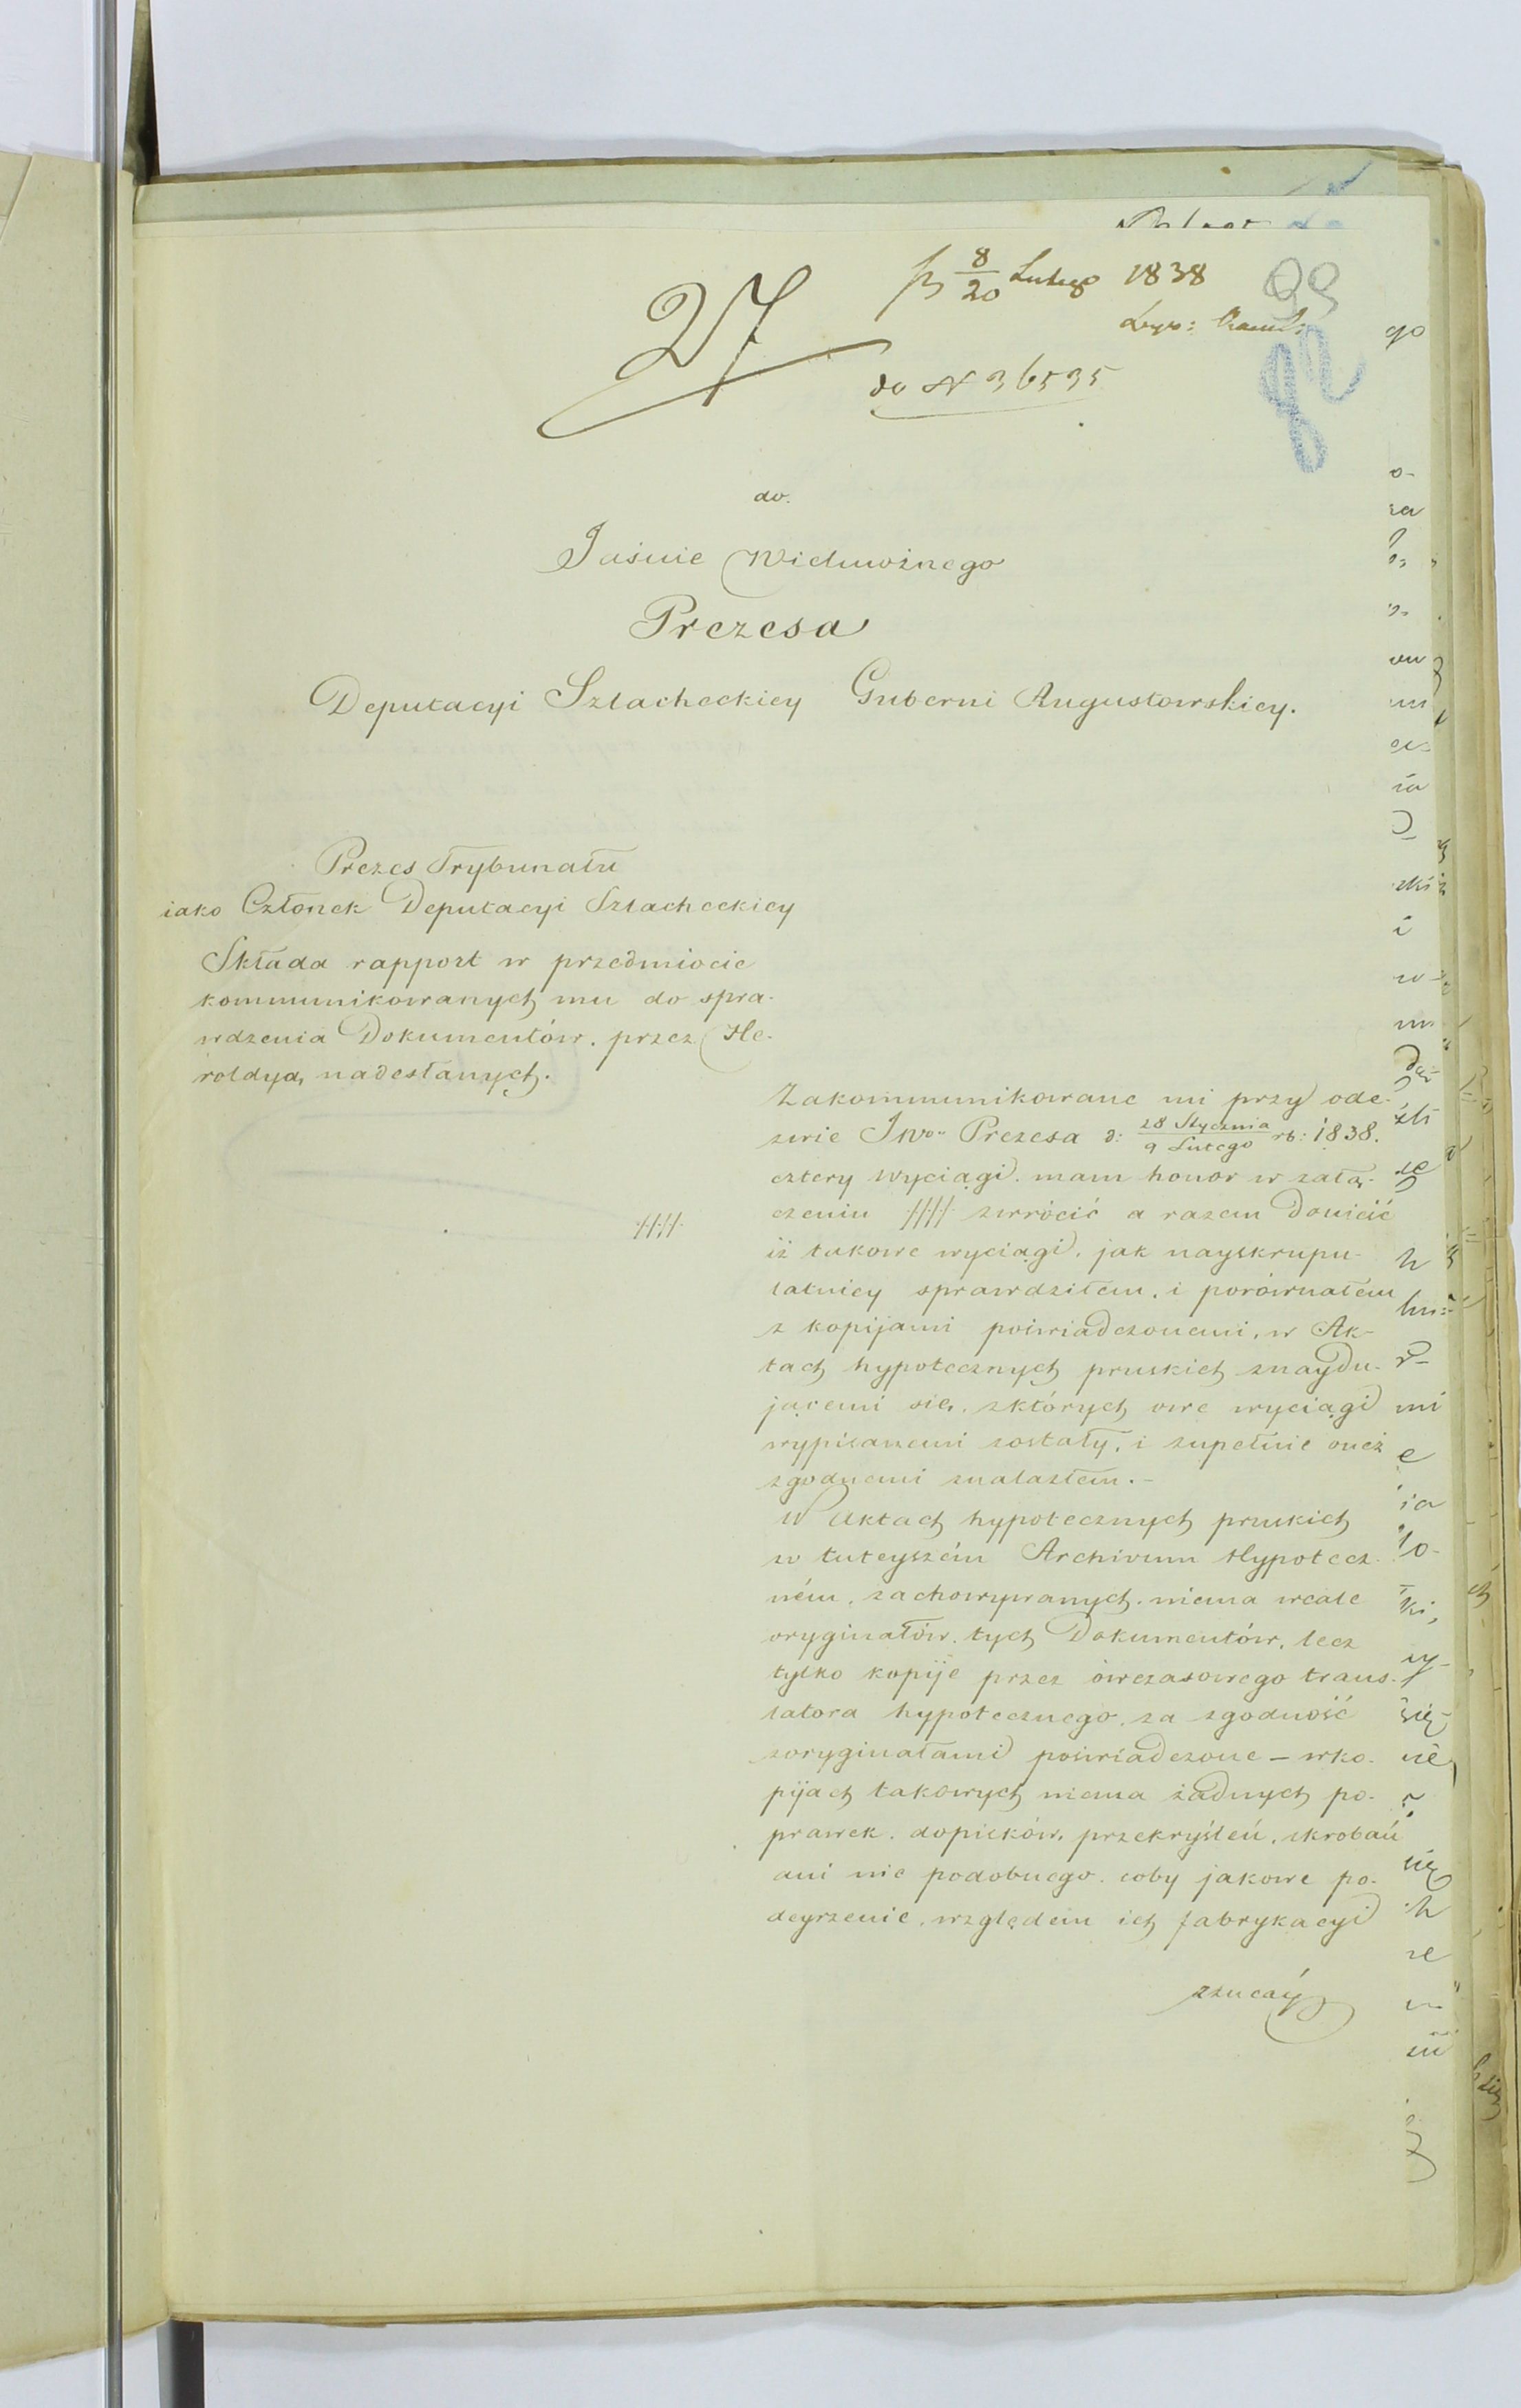 27
8/20 Lutego 1838
99
do N 36535
do.
Jaśnie Wielmożnego
Prezesa
Deputacyi Szlacheckiey Guberni Augustowskiey.
Prezes Trybunału
iako Członek Deputacyi Szlacheckiey
Składa rapport w przedmiocie
kommunikowanych mu do spra-
wdzenia Dokumentów, przez He-
roldyą nadesłanych.
Zakommunikowane mi przy ode-
zwie JWo Prezesa d: 28 Stycznia/9 Lutego rb: 1838.
cztery wyciągi, mam honor w załą-
czeniu //// zwrócić a razem donieść
iż takowe wyciągi, jak nayskrupu-
latniey sprawdziłem, i porównałem
z kopijami poświadczonemi, w Ak-
tach hypotecznych pruskich znaydu-
jącemi się, z których owe wyciągi
wypisanemi zostały, i zupełnie oneż
zgodnemi znalazłem.-
W Aktach hypotecznych pruskich
w tuteyszém Archivum Hypotecz-
ném, zachowywanych, niema wcale
oryginałów tych Dokumentów, lecz
tylko kopije przez ówczasowego trans-
latora hypotecznego, za zgodność
z oryginałami poświadczone – w ko-
pijach takowych niema żadnych po-
prawek, dopisków, przekryśleń, skrobań
ani nic podobnego, coby jakowe po-
deyrzenie, względem ich fabrykacyi
rzucały